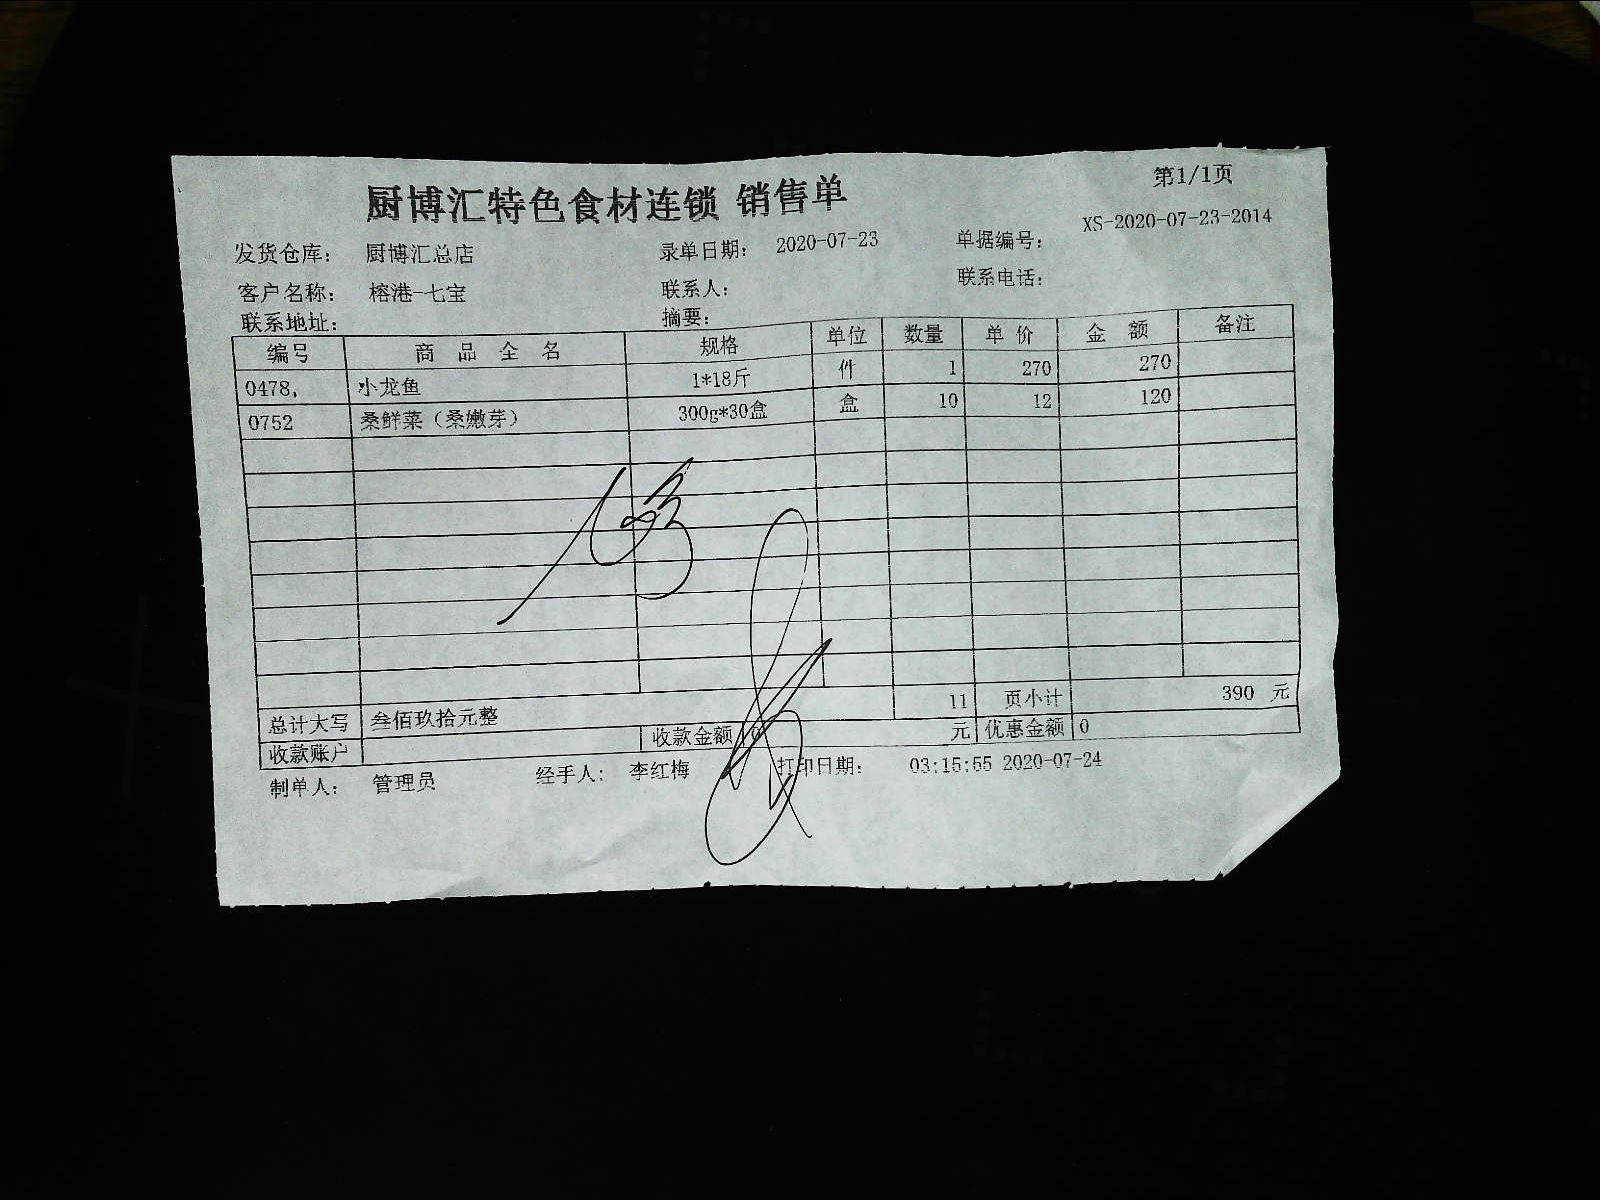 第1/1页
厨博汇特色食材连锁 销售单
发货仓库： 厨博汇总店 录单日期： 2020-07-23 单据编号： XS-2020-07-23-2014
客户名称： 榕港-七宝 联系人： 联系电话：
联系地址： 摘要：
编号 商 品 全 名 规格 单位 数量 单 价 金 额 备注
0478, 小龙鱼 1*18斤 件 1 270 270
0752 桑鲜菜（桑嫩芽） 300g*30盒 盒 10 12 120
11 页小计 390 元
总计大写 叁佰玖拾元整
收款账户 收款金额 0 元 优惠金额 0
制单人： 管理员 经手人： 李红梅 打印日期： 03:15:55 2020-07-24